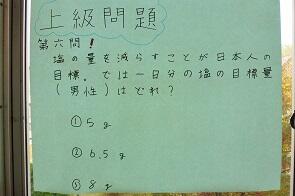 上級問題
第六問!
塩の量を減らすことが日本人の
目標。では一日分の塩の目標量
(男性)はどれ?
①5g
②6.5g
③8g